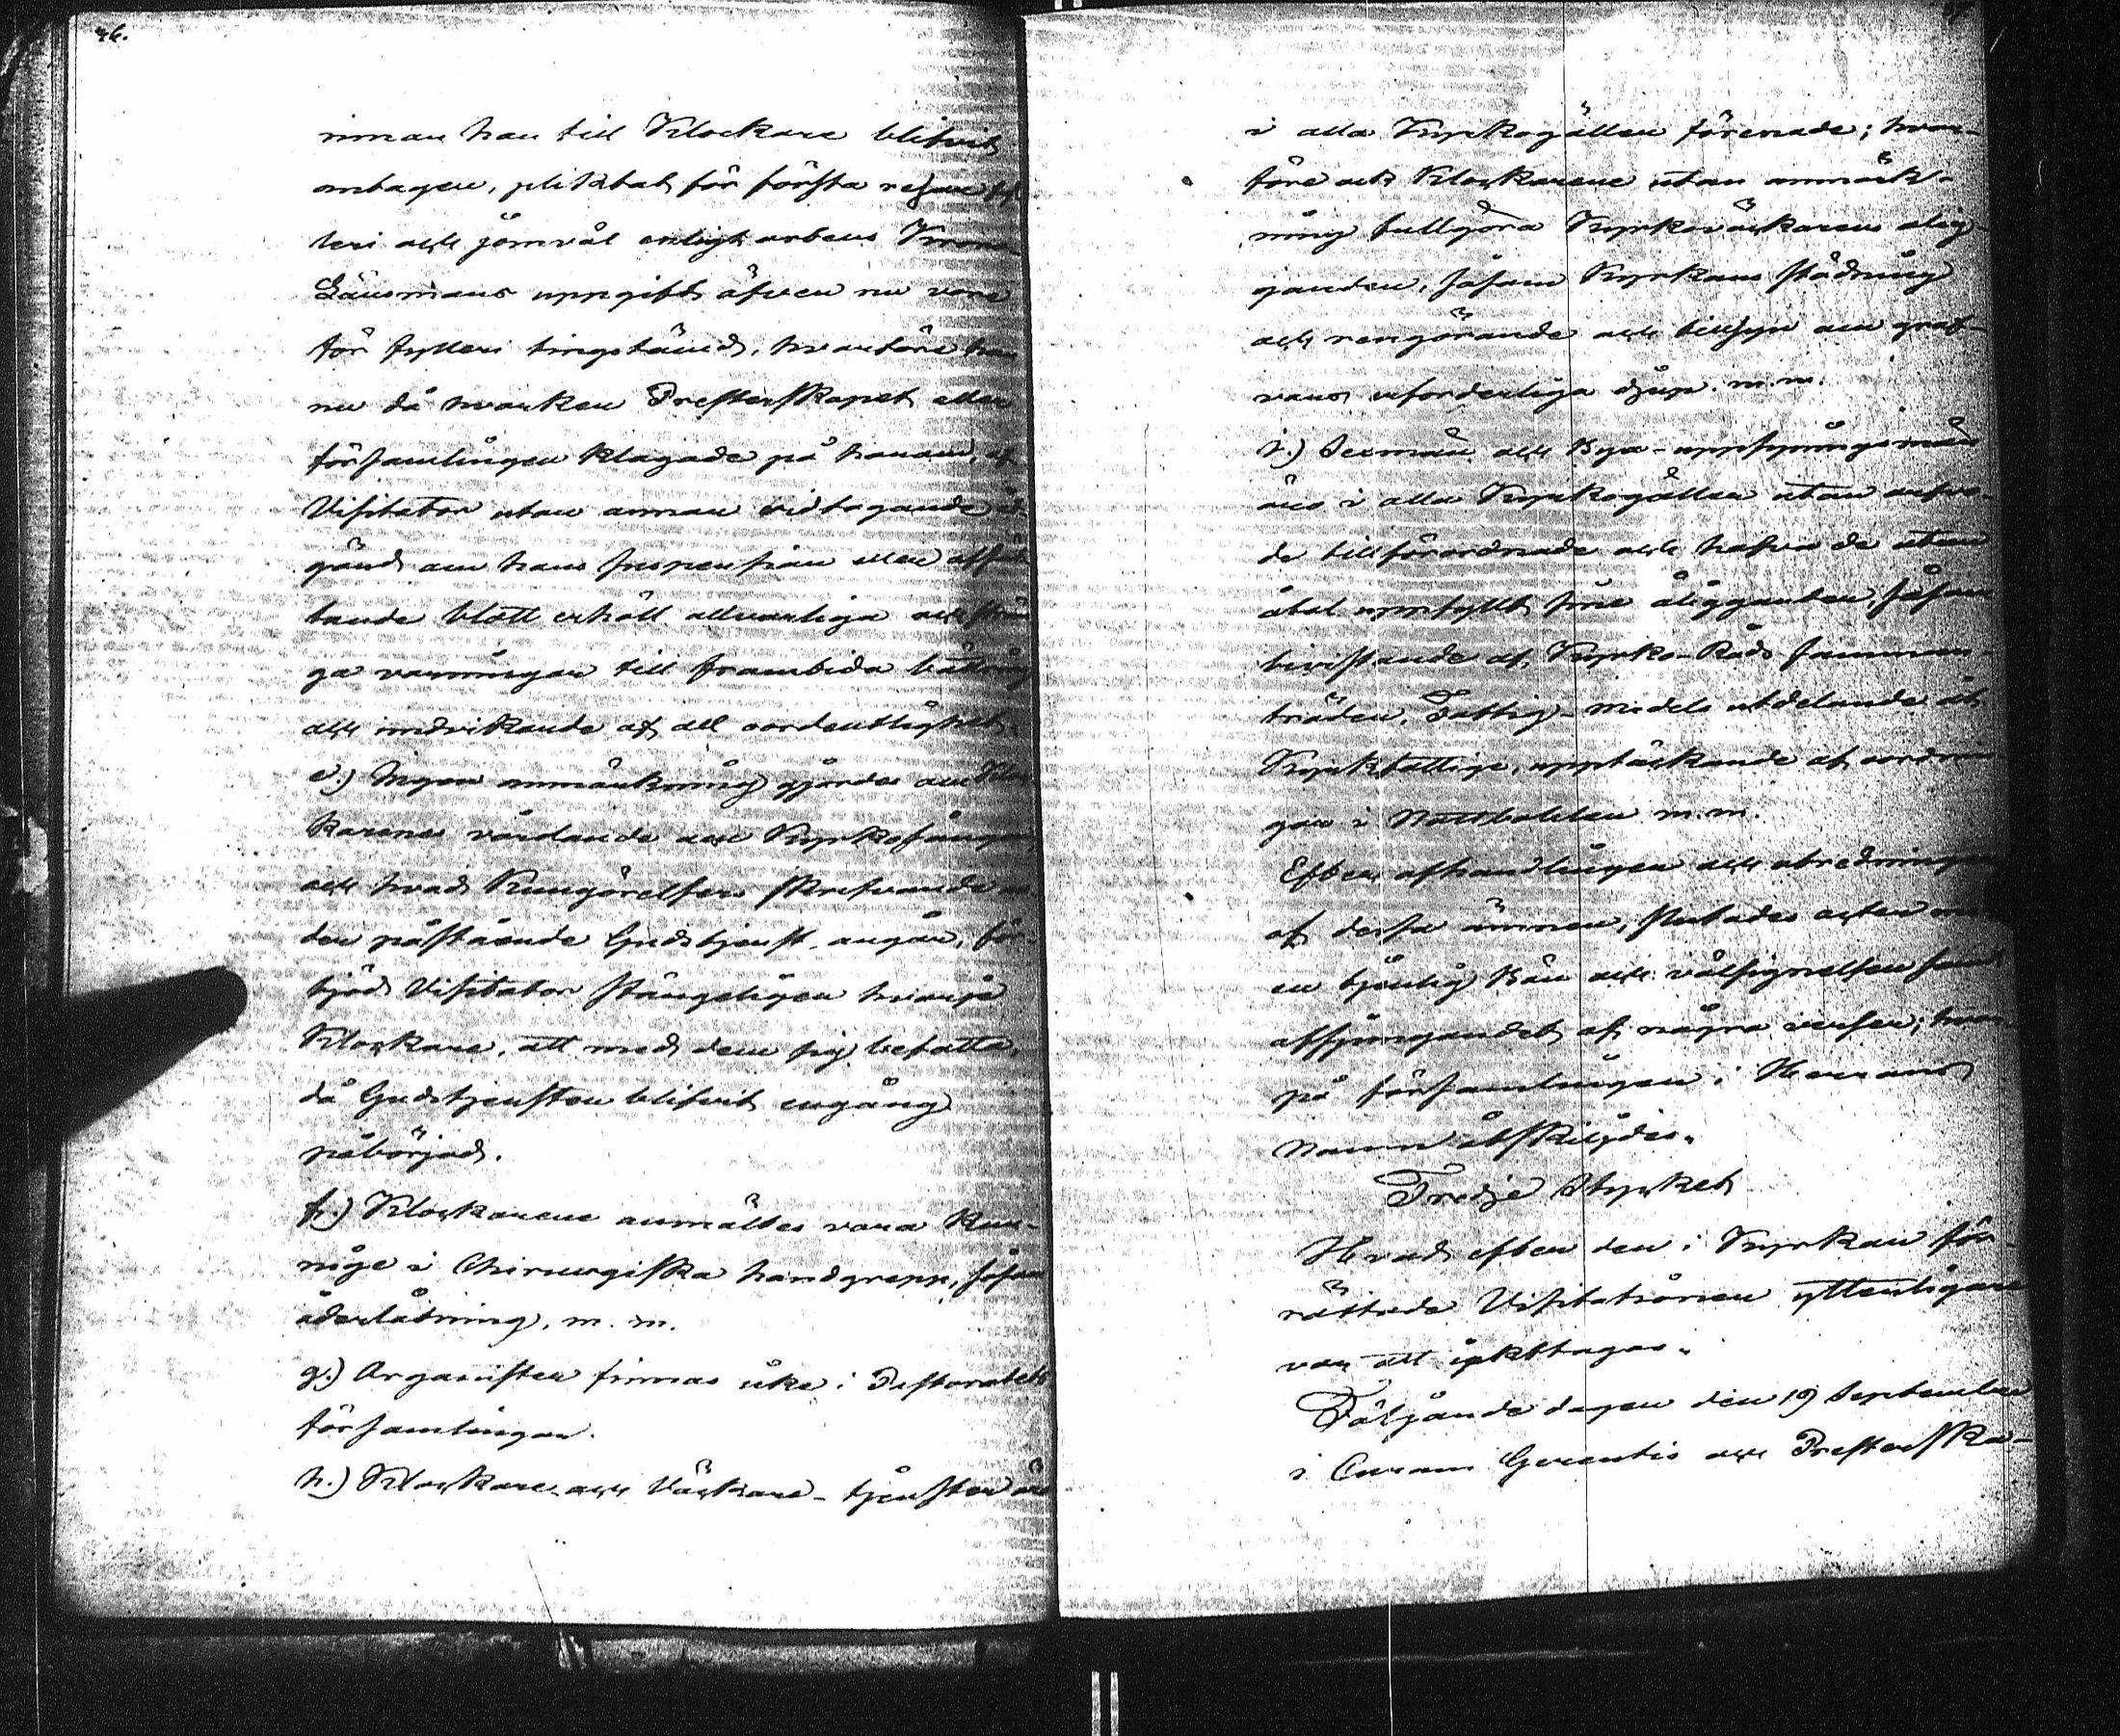 46.
innan han till Klockare blifvit
antagen, pliktat för första resan fyl-
leri och jemväl enligt orteus Krono
Länsmans uppgift äfven nu vore
för fylleri tingstämd, hvarföre han
nu då hvarken Presterskapet eller
församlingen klagade på honom, af
Visitator utan annan vidtagande åt-
gärd om hans suspension eller afsät-
tande blott erhöll allvarliga och strän
ga varningar till framtida bättring
och undvikande af all oordentlighet.
e.) Ingen anmärkning gjordes om Kloc
karenes vårdande om Kyrkosången,
och hvad Kungörelsers skrifvande un
der påstående Gudstjenst angår, för-
bjöd Visitator strängeligen hvarje
Klockare, att med dem sig befatta,
då Gudstjensten blifvit engång
påbörjad.
f.) Klockarene anmältes vara kun-
nige i Chirurgiska handgrepp, såsom
åderlåtning, m. m.
g.) Organister finnas icke i Pastoratets
församlingar.
h.) Klockare och Väckare-tjenster äro
i alla Kyrkogällen förenade; hvar-
före ock Klockarene utan anmärk-
ning fullgöra Kyrkoväckarens ålig-
ganden, såsom Kyrkans städning
och rengörande och tillsyn om graf-
varnas erforderliga djup. m.m.
i.) Sexmän och Bya-uppsyningsmän
äro i alla Kyrkogällen utan
de tillförordnade och hafva de utan
åtal uppfyllt sine åligganden, såsom
bivistande af Kyrko-Råds samman-
träden, Fattig-medels utdelande åt
Kyrkfattige, upptäckande af oordnin
gar i Nattvakten m.m.
Efter afhandlingen och utredningen
af dessa ämnen, slutades acten med
en tjenlig Bön och välsignelsen samt
afsjungandet af några verser; hvar-
på församlingen i Herrans
Namn åtskiljdes.
Tredje Stycket
Hvad efter den i Kyrkan för-
rättade Visitationen ytterligare
var att iakttagas.
Följande dagen den 19 September
i Curam Gerentis och Presterska-